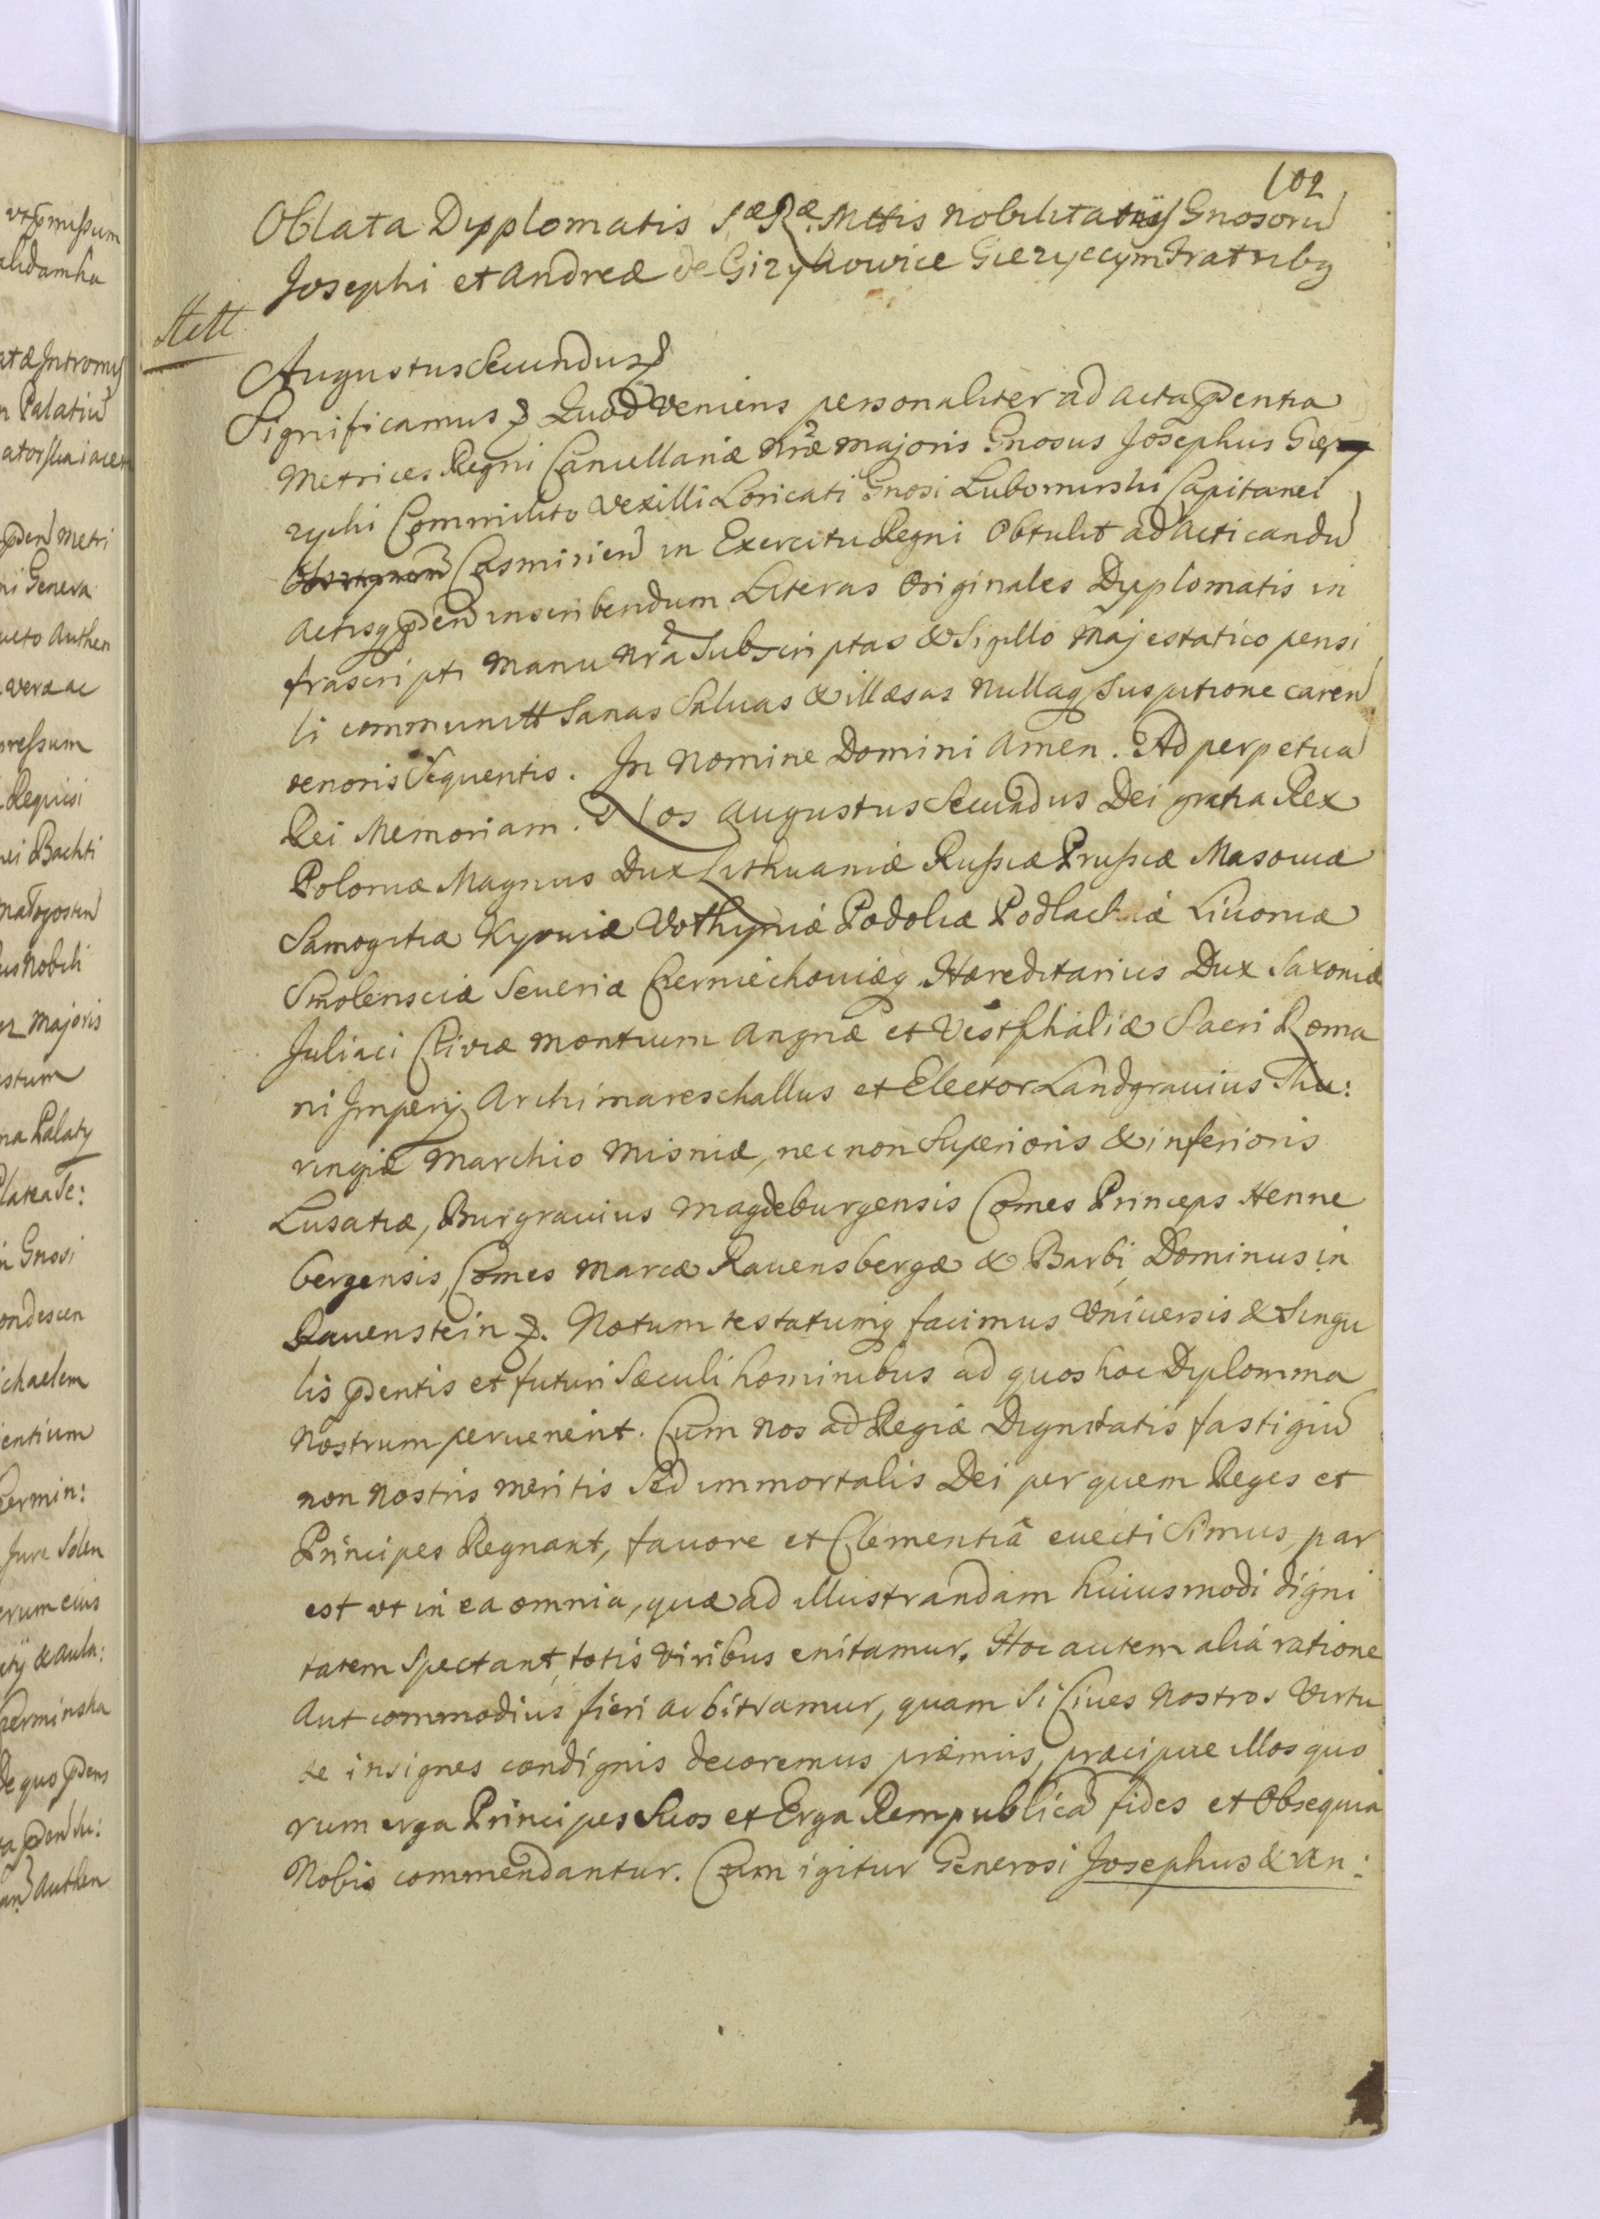 102
Oblata Dypplomatis Sæ Ræ Mttis Nobilitatiis Gnosorū
Josephi et Andreæ de Gizykowice Gierycym Fratribq
Augustus Secundus
Significamus Quod Veniens personaliter ad Acta pdentia
Metrices Regni Cancellariæ Nræ Majoris Gnosus Josephus Gie
zycki Commilito Vexilli Loricati Gnosi Lubomirski Capitanei
Casmirien in Exercitu Regni Obtulit ad Acticandū
Actisq pden inscribendum Literas Originales Dyplomatis in
frascripti Manu Nrā Subscriptas & Sigillo Majestatico pensi
li communitt Sanas Saluas & illæsas Nullaq Suspitione caren
tenoris Sequentis. In Nomine Domini Amen. Ad perpetuā
Rei Memoriam. Nos Augustus Secundus Dei gratia Rex
Poloniæ Magnus Dux Lithuaniæ Russiæ Prussiæ Masouiæ
Samogitiæ Kyouiæ Volhyniæ Podoliæ Podlachiæ Liuoniæ
Smolensciæ Seueriæ Czerniechouiæq Hæreditarius Dux Saxoniæ
Juliaci Cliviæ Montium Angriæ et Vestphaliæ Sacri Roma
ni Imperij Archimareschallus et Elector Landgrauius Thu:
ringiæ Marchio Misniæ, nec non Superioris & inferioris
Lusatiæ, Burgrauius Magdeburgensis Comes Princeps Henne
bergensis, Comes Marcæ Rauensbergæ & Barbi, Dominus in
Rauenstein. Notum testatumq facimus Vniuersis & Singu
lis pdentis et futuri Sæculi hominibus ad quos hoc Dyplomma
Nostrum peruenerit. Cum Nos ad Regiæ Dignitatis fastigiū
non Nostris Meritis Sed immortalis Dei per quem Reges et
Principes Regnant, fauore et Clementiâ euecti Simus, par
est vt in ea omnia, quæ ad illustrandam huiusmodi digni
tatem Spectant, totis Viribus enitamur. Hoc autem aliâ ratione
Aut commodius fieri arbitramur, quam Si Ciues Nostros Virtu
te insignes condignis decoremus præmiis, præcipue illos quo
rum erga Principes Suos et Erga Rempublicā fides et Obsequia
Nobis commendantur. Cum igitur Generosi Josephus & An: